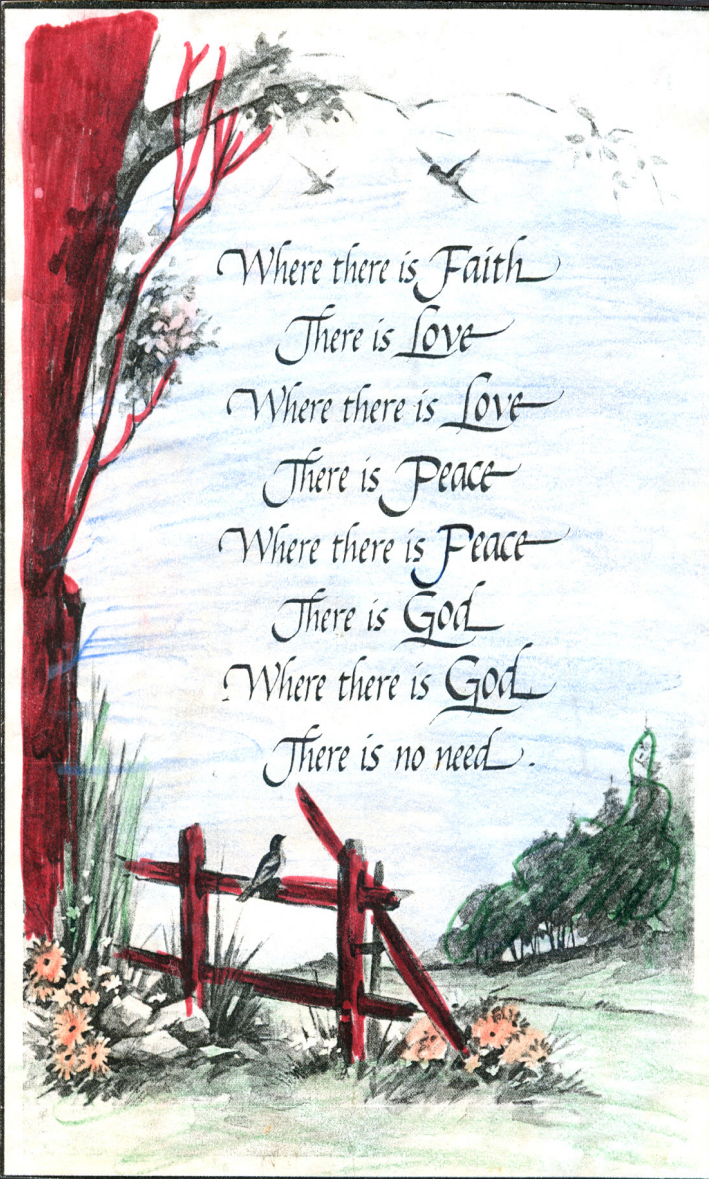 Where there is Faith
There is Love
Where there is Love
There is Peace
Where there is Peace
There is God
Where there is God
There is no need.